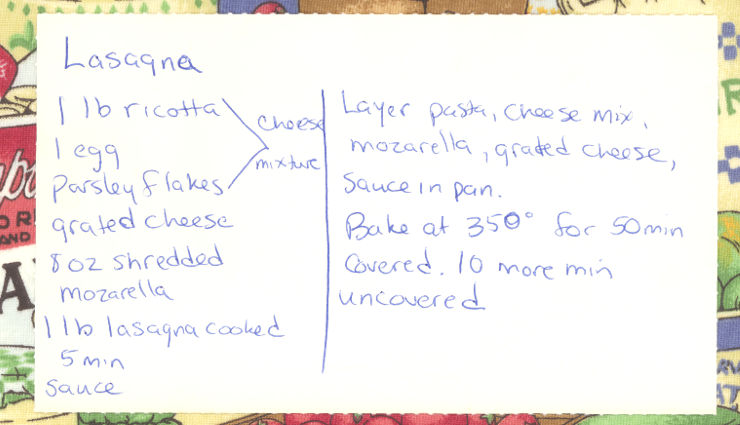 Lasagna
1 lb ricotta
1 egg
Parsley flakes
cheese
mixture
grated cheese
8 oz shredded
mozarella
1 lb lasagna cooked
5 min
sauce
Layer pasta, cheese mix,
mozarella, grated cheese,
sauce in pan.
Bake at 350° for 50 min
Covered. 10 more min
uncovered